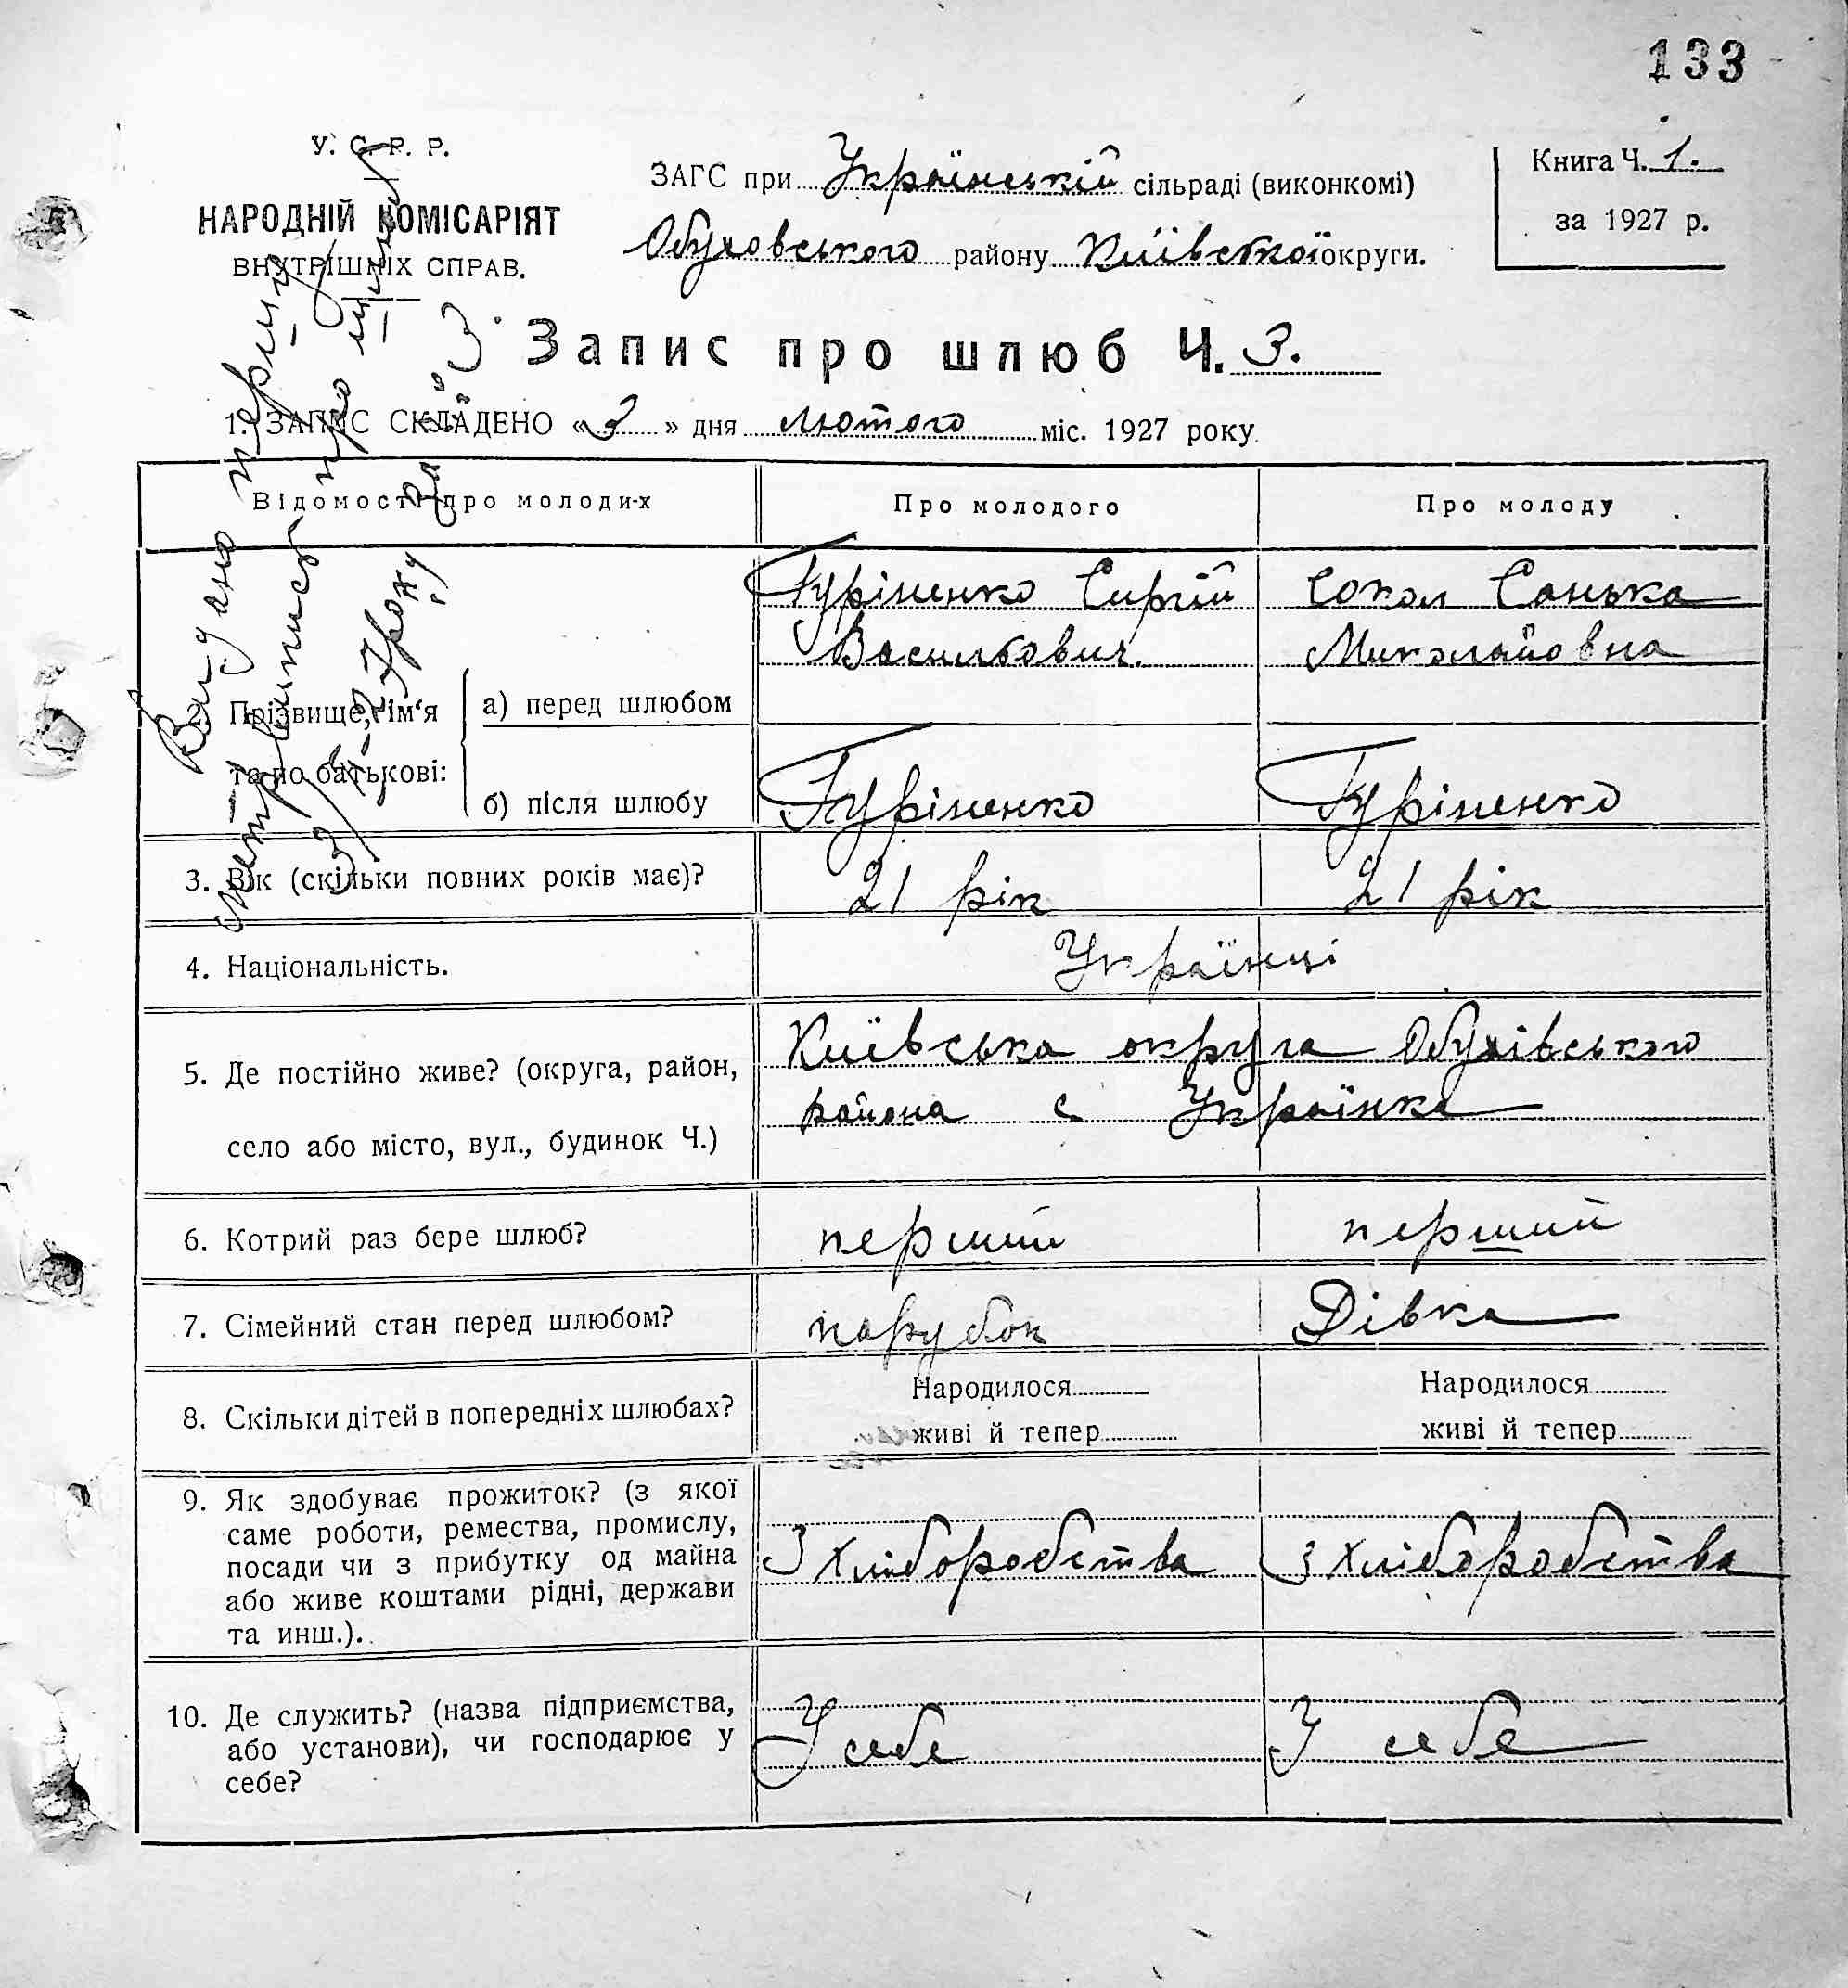 133
У. С. Р. Р.
НАРОДНІЙ КОМІСАРІЯТ
ВНУТРІШНІХ СПРАВ.
ЗАГС при Українській сільраді (виконкомі)
Обуховського району Київської округи.
Книга Ч. 1.
за 1927 р.
Запис про шлюб Ч. 3.
1. ЗАПИС СКЛАДЕНО «3» дня лютого міс. 1927 року
Видано першу
метр. виписъ про шлюб
3/II-27 року за № 3
Відомості про молоди-х
Про молодого
Про молоду
Прізвище, ім'я
та по батькові:
а) перед шлюбом
Гуріненко Сиргій
Васильович.
Сокол Санька
Миколайовна
б) після шлюбу
Гуріненко
Гуріненко
3. Вік (скільки повних років має)?
21 рік
21 рік
4. Національність.
Українці
5. Де постійно живе? (округа, район,
село або місто, вул., будинок Ч.)
Київська округа Обухівського
района с Українка
6. Котрий раз бере шлюб?
перший
перший
7. Сімейний стан перед шлюбом?
парубок
Дівка
8. Скільки дітей в попередніх шлюбах?
Народилося
живі й тепер
Народилося
живі й тепер
9. Як здобуває прожиток? (з якої
саме роботи, ремества, промислу,
посади чи з прибутку од майна
або живе коштами рідні, держави
та инш.).
З хліборобства
З хліборобства
10. Де служить? (назва підприємства,
або установи), чи господарює у
себе?
У себе
У себе